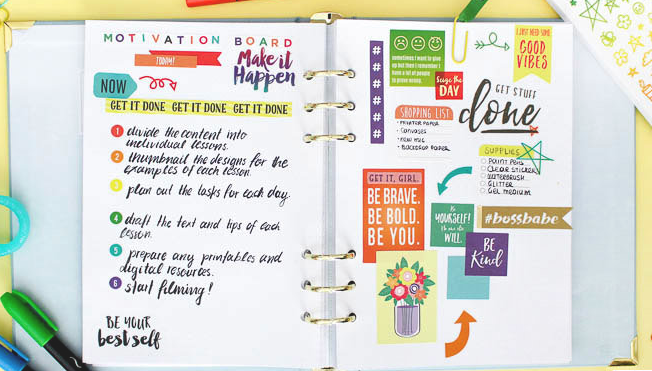 MOTIVATION BOARD
TODAY!
Make it
Happen
NOW
GET IT DONE GET IT DONE GET IT DONE
1 divide the content into
individual lessons.
2 thumbnail the designs for the
examples of each lesson.
3 plan out the tasks for each day.
4 draft the text and tips of each
lesson.
5 prepare any printables and
digital resources.
6 start filming!
BE YOUR
best self
#
#
#
#
#
#
sometimes I want to give
up but then I remember I
have a lot of people
to prove wrong.
Seize the
DAY
I JUST NEED SOME
GOOD
VIBES
GET STUFF
done
SHOPPING LIST
PRINTER PAPER
CANVASES
NEW MUG
BACKDROP PAPER
SUPPLIES
PAINT PENS
CLEAR STICKERS
WATERBRUSH
GLITTER
GEL MEDIUM
GET IT, GIRL.
BE BRAVE.
BE BOLD.
BE YOU.
Be
YOURSELF!
No one else
WILL.
#bossbabe
BE
Kind